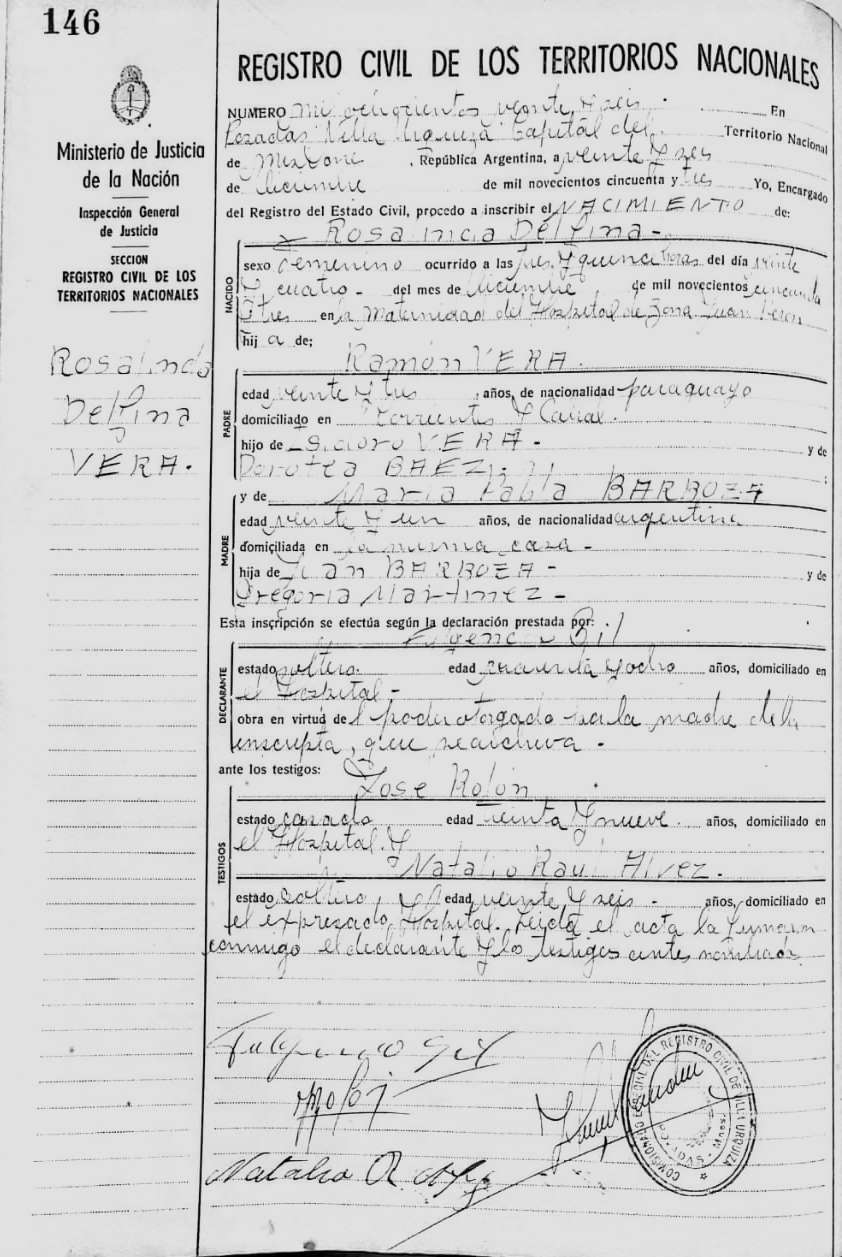 146
Ministerio de Justicia
de la Nación
Inspección General
de Justicia
SECCION
REGISTRO CIVIL DE LOS
TERRITORIOS NACIONALES
Rosalinda
Delfina
VERA.
REGISTRO CIVIL DE LOS TERRITORIOS NACIONALES
NUMERO Mil quinientos veinte y seis. En
Posadas Villa Urquiza Capital del Territorio Nacional
de Misiones, República Argentina, a veinte y seis
de diciembre de mil novecientos cincuenta y tres Yo, Encargado
del Registro del Estado Civil, procedo a inscribir el NACIMIENTO de:
Delfina -
NACIDO
sexo femenino ocurrido a las tres y quince horas del día veinte
y cuatro - del mes de diciembre, de mil novecientos cincuenta
y tres en la Maternidad del Hospital de Zona Juan Perón
hija de;
Ramón VERA.
PADRE
edad veinte y tres, años, de nacionalidad paraguayo
domiciliado en Corrientes y
hijo de Isidoro VERA - y de
Dorotea BAEZ;
y de María Pabla BARBOZA
MADRE
edad veinte y un años, de nacionalidad argentina
domiciliada en la misma casa -
hija de Juan BARBOZA - y de
Gregoria Martinez -
Esta inscripción se efectúa según la declaración prestada por:
Fulgencio Gil
DECLARANTE
estado soltero. edad cuarenta y ocho años, domiciliado en
el Hospital -
obra en virtud del poder otorgado por la madre de la
inscripta, que se archiva -
ante los testigos:
Jose Rolón
TESTIGOS
estado casado edad treinta y nueve. años, domiciliado en
el Hospital. y
Natalio Raul Alvez.
estado soltero, edad veinte y seis - años, domiciliado en
el expresado Hospital. Leida el acta la firman
conmigo el declarante y los testigos antes nombrados.
Fulgencio Gil
Natalio R.
COMISIONADO DEL REGISTRO CIVIL DE VILLA URQUIZA
POSADAS - Mnes.